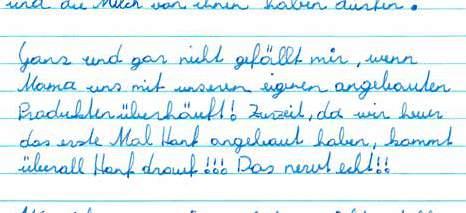 und die Milch von ihnen haben durften.
Ganz und gar nicht gefällt mir, wenn
Mama uns mit unseren eigenen angebauten
Produkten überhäuft! Zurzeit, da wir heuer
das erste Mal Hanf angebaut haben, kommt
überall Hanf drauf!!! Das nervt echt!!